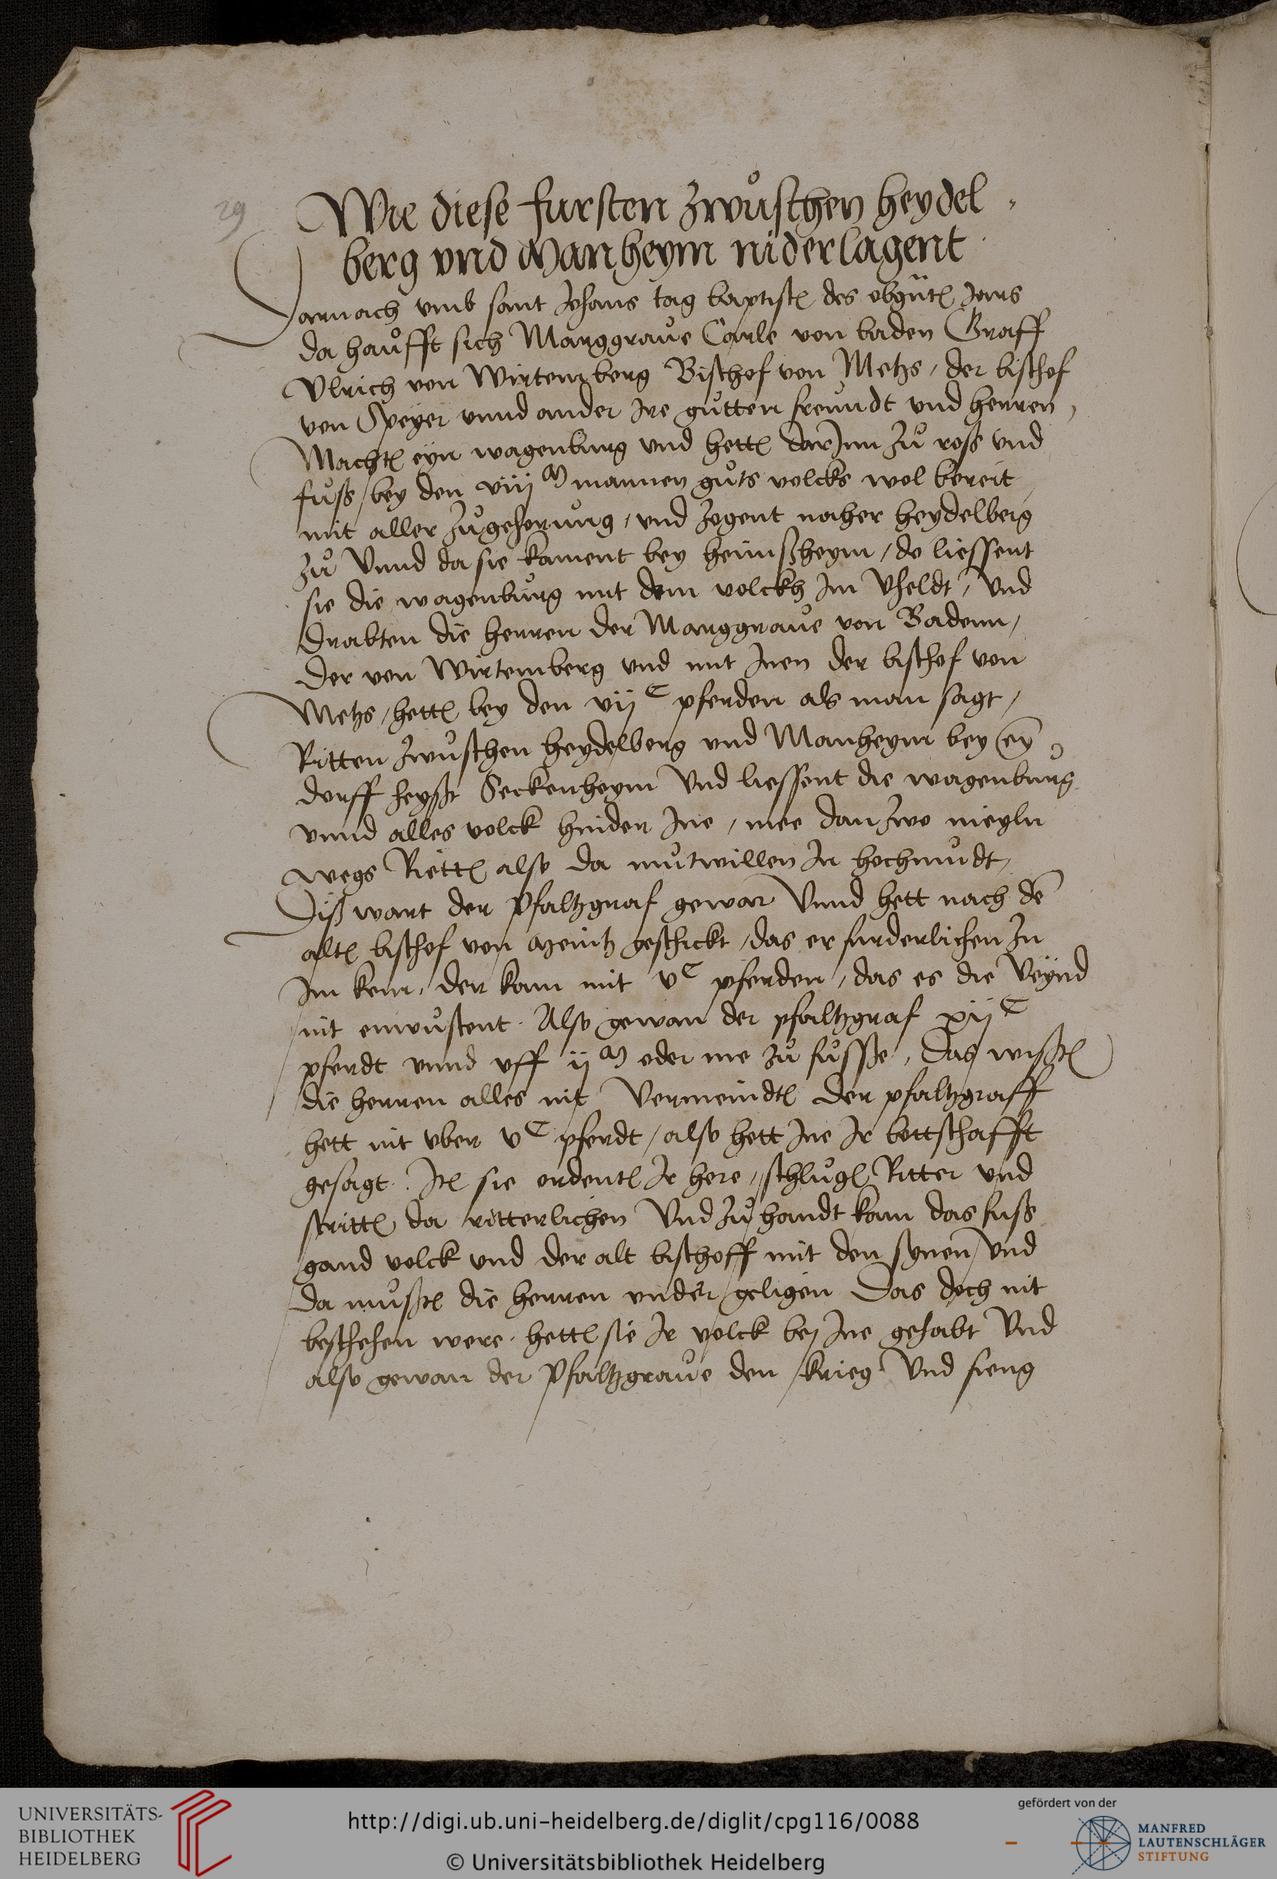 29
Wie diese fursten zwůschen heydel
berg vnd Manheym niderlagent
Darnach vmb sant Johans tag baptiste des obgñten jars
da haufft sich Marggraue Carle von baden Graff
Vlrich von Wirtemberg Bischof von Metzs / der bischof
von Speyer vnnd ander Ire gůtten freundt vnd herren
Machten eyn wagenburg vnd hetten darInn zů ross vnd
fůss / bey den viij M mannen gůts volcks wol bereit
mit aller zůgehorung / vnd zogent naher heydelberg
zů Vnnd da sie kament bey heimßheym / do liessent
sie die wagenburg mit dem volckh Im Vheldt / Vnd
drabten die herren der Marggraue von Badenn /
der von Wirtemberg vnd mit Inen der bischof von
Metzs / hetten bey den vij C pferden als man sagt /
Ritten zwůschen heydelberg vnd Manheym bey eỹ
dorff heyßt Seckenheym Vnd liessent die wagenburg
vnnd alles volck hinden Ine / mee dan zwo meyln
wegs Ritten also da můtwillen In hochmůdt /
Diß wart der Pfaltzgraf gewar Vnnd hett nach dē
alten bischof von Meintz geschickt / das er furderlichen zu
Im kem / der kam mit v C pferden / das es die Veynd
nit enwůstent. Also gewan der pfaltzgraf xij C
pferdt vnnd vff ij M oder me zů fůsße / Das wißten
die herren alles nit Vermeindten der pfaltzgraff
hett nit vber v C pferdt / also hett Ine Ir bottschafft
gesagt. Iten sie ordenten Ir here / schlůgen Ritter vnd
stritten da ritterlichen Vnd zů handt kam das fuss
gand volck vnd der alt bischoff mit den synen Vnd
da můßten die herren vnder geligen Das doch nit
beschehen were / hetten sie Ir volck bej Ine gehabt Vnd
also gewan der Pfaltzgraue den krieg Vnd fieng
UNIVERSITÄTS-
BIBLIOTHEK
HEIDELBERG
http://digi.ub.uni-heidelberg.de/diglit/cpg116/0088
© Universitätsbibliothek Heidelberg
gefördert von der
MANFRED
LAUTENSCHLÄGER
STIFTUNG